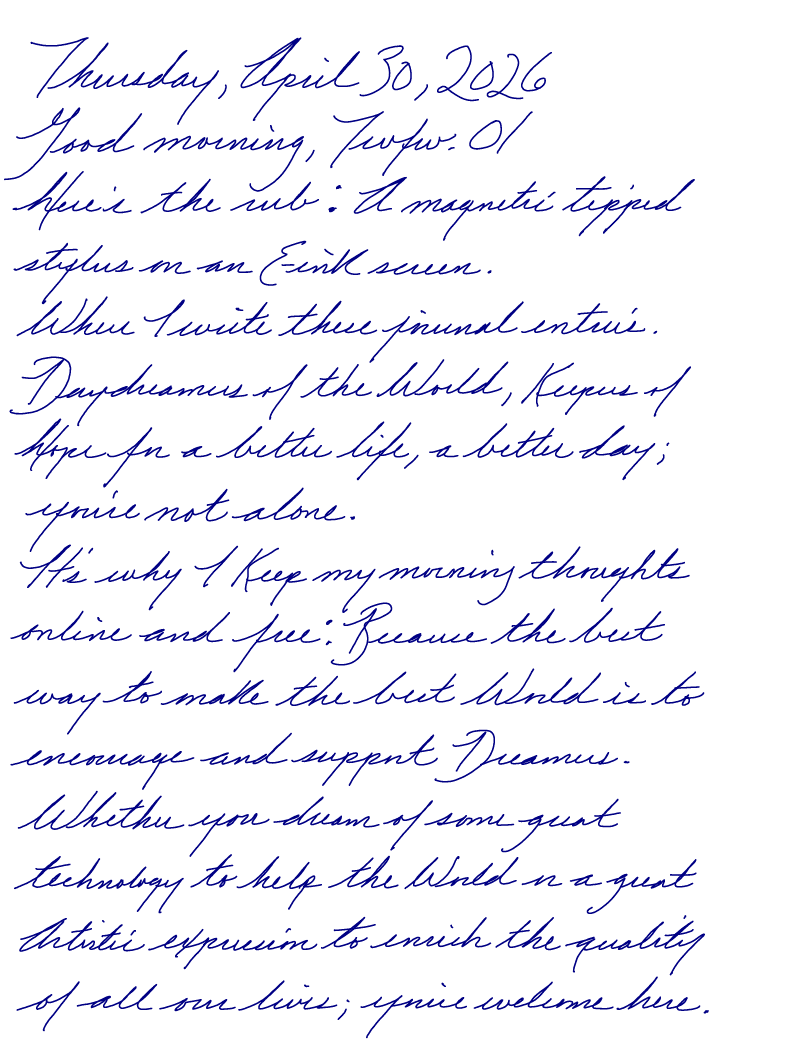 Thursday, April 30, 2026
Good morning, Twfw. 01
Here's the rub: A magnetic tipped
stylus on an E-ink screen.
Where I write these journal entries.
Daydreamers of the World, Keepers of
Hope for a better life, a better day;
you're not alone.
It's why I Keep my morning thoughts
online and free: Because the best
way to make the best World is to
encourage and support Dreamers.
Whether you dream of some great
technology to help the World or a great
Artistic expression to enrich the quality
of all our lives; you're welcome here.